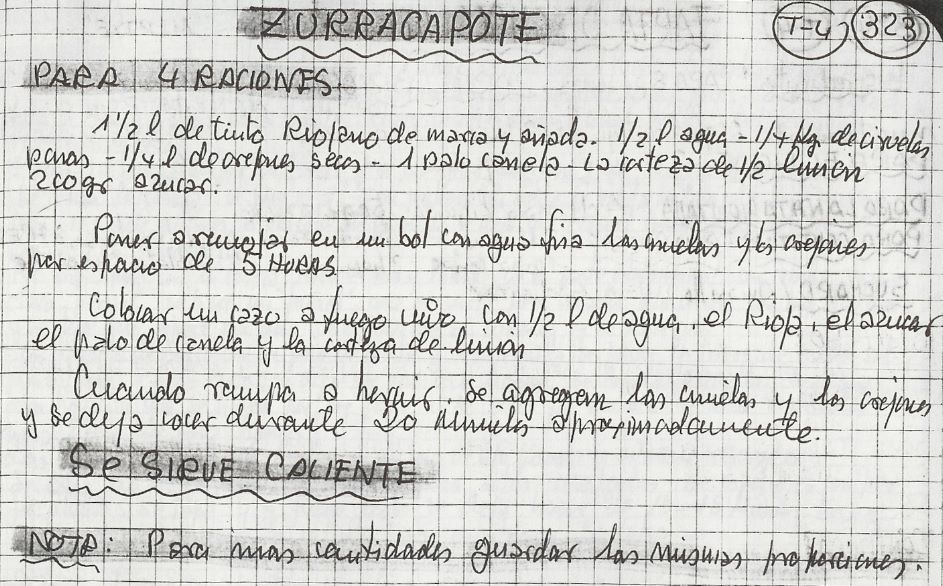 ZURRACAPOTE
T-4 323
PARA 4 RACIONES.
1 1/2 l de tinto Riojano de marca y añada. 1/2 l agua - 1/4 Kg. de ciruelas
pasas - 1/4 l de orejones secos - 1 palo canela - La corteza de 1/2 limón
200 gr azucar.
Poner a remojar en un bol con agua fria las ciruelas y los orejones
por espacio de 5 HORAS
Colocar un cazo a fuego vivo con 1/2 l de agua, el Rioja, el azucar
el palo de canela y la corteza de limón
Cuando rompa a hervir, se agregan las ciruelas y los orejones
y se deja cocer durante 20 minutos aproximadamente.
SE SIRVE CALIENTE
NOTA: Para mas cantidades guardar las mismas proporciones.